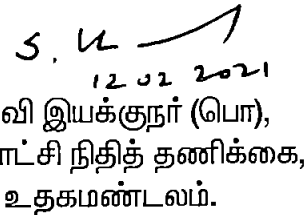 12 02 2021
வி இயக்குநர் (பொ),
ாட்சி நிதித் தணிக்கை,
உதகமண்டலம்.